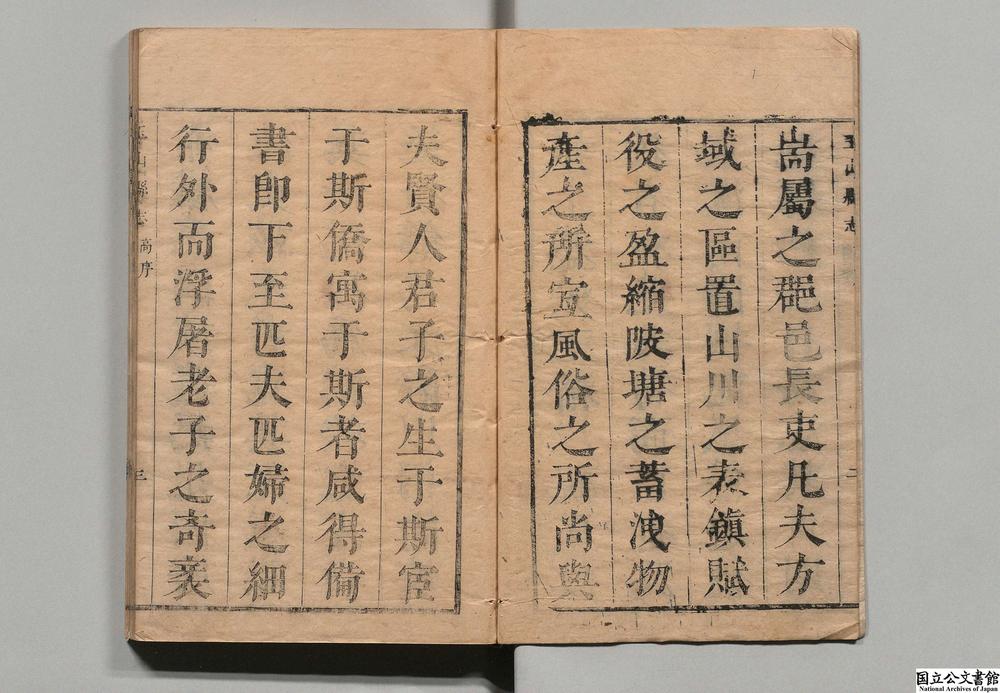 玉山縣志
耑屬之郡邑長吏凡夫方
域之區置山川之表鎮賦
役之盈縮陂塘之蓄洩物
產之所宜風俗之所尚與
夫賢人君子之生于斯宦
于斯僑寓于斯者咸得備
書即下至匹夫匹婦之細
行外而浮屠老子之奇袤
玉山縣志 高序 三
国立公文書館
National Archives of Japan